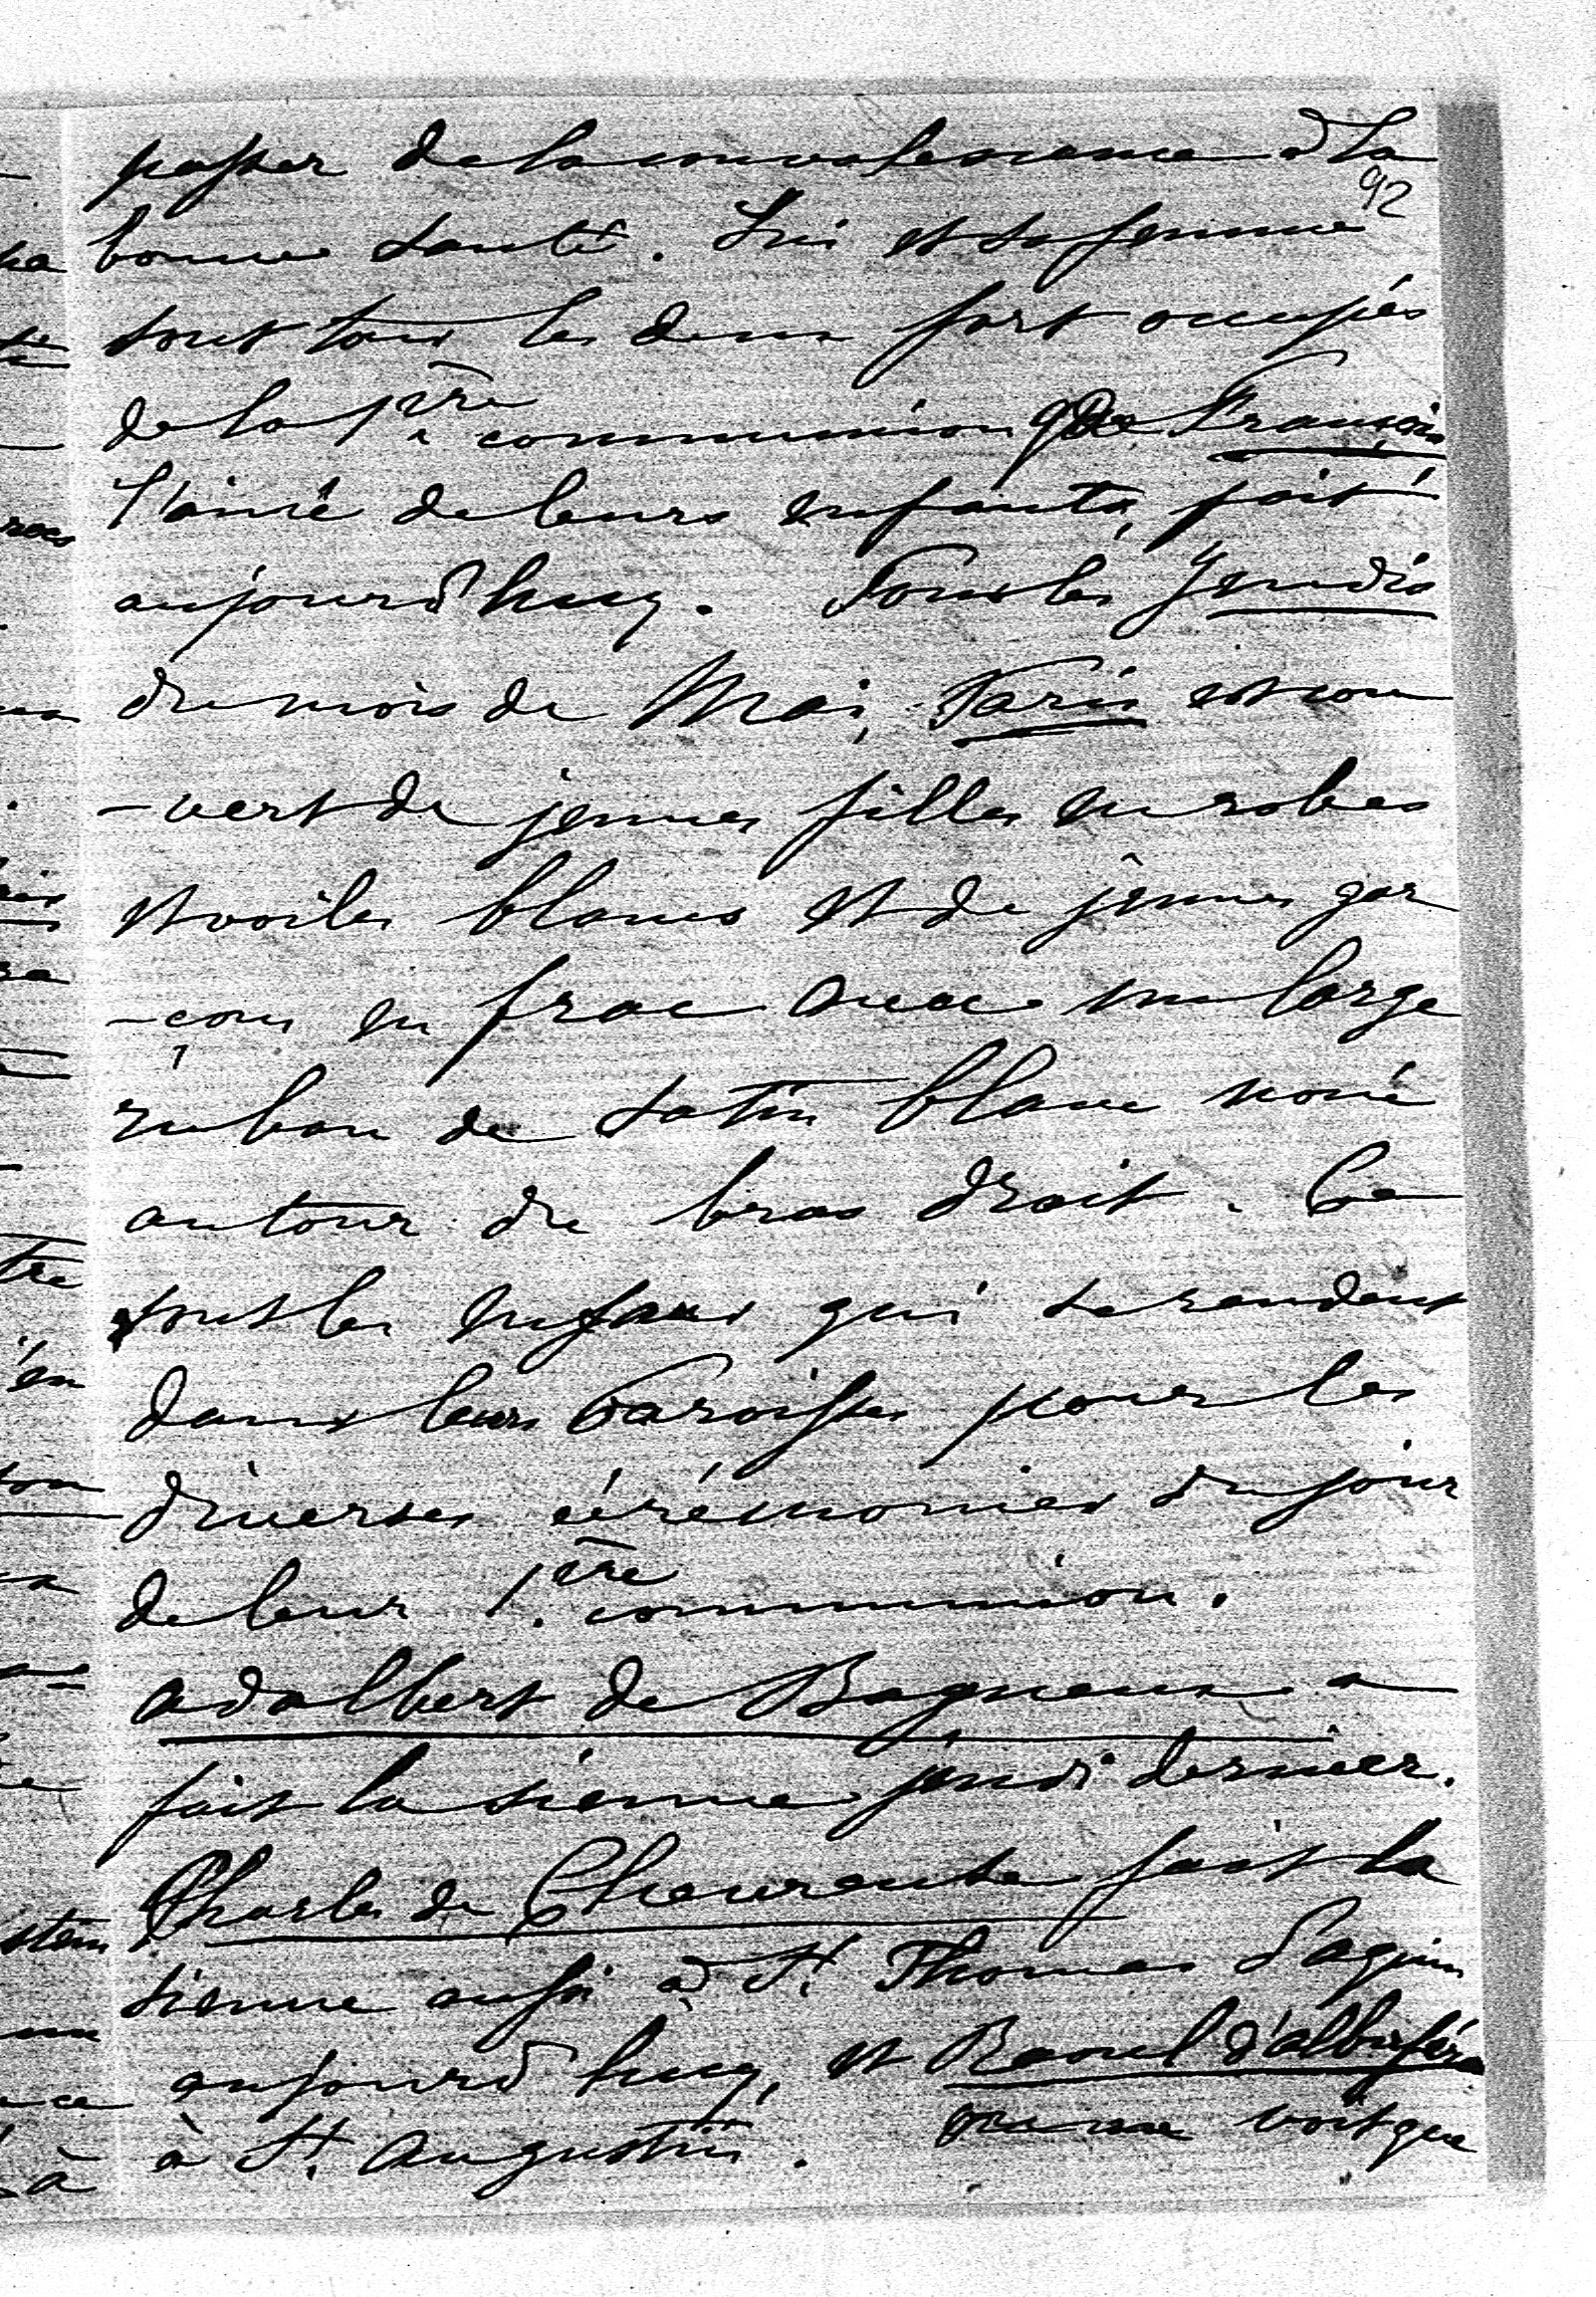 passer de la convalescence à la
92
bonne santé. Lui et sa femme
sont tous les deux fort occupés
de la 1ère communion que François
l'ainé de leurs enfants, fait
aujourd'huy. Tous les Jeudis
du mois de Mai, Paris est cou
-vert de jeunes filles en robes
et voiles blancs et de jeunes gar
-çons en frac avec un large
ruban de satin blanc noué
autour du bras droit. Ce
sont les enfans qui se rendent
dans leurs Paroisses pour les
diverses cérémonies du jour
de leur 1ère communion.
Adalbert de Bagneux a
fait la sienne jeudi dernier.
Charles de Chevreuse fait la
sienne aussi à St Thomas d'aquin
aujourd'huy, et Raoul d'albuféra
à St Augustin. on ne voit que